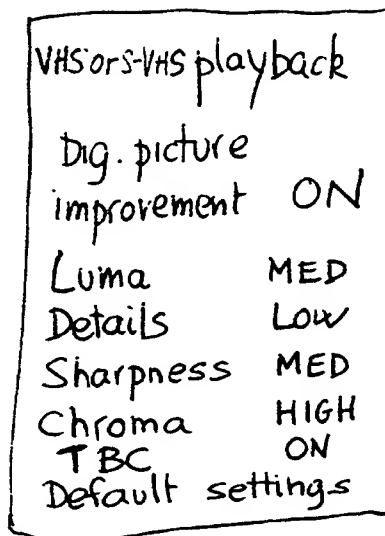 VHS or S-VHS playback
Dig. picture
improvement ON
Luma MED
Details LOW
Sharpness MED
Chroma HIGH
TBC ON
Default settings